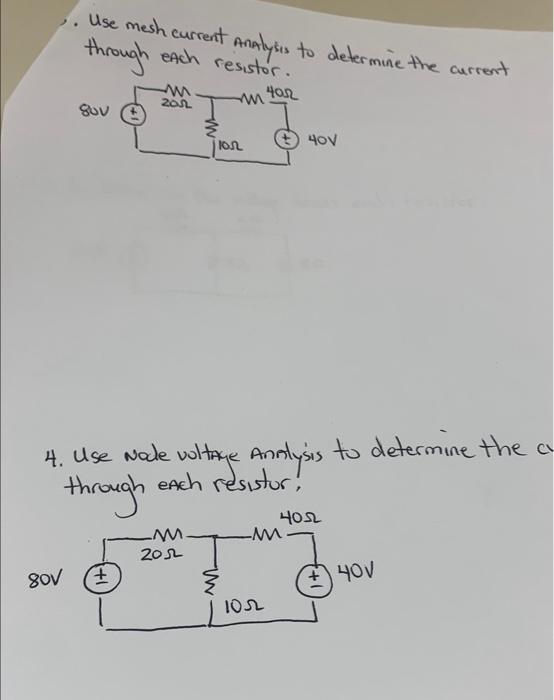 . Use mesh current Analysis to determine the current
through each resistor.
20Ω
40Ω
80V
+
10Ω
+
40V
4. Use Node voltage Analysis to determine the c
through each resistor!
40Ω
20Ω
80V
+
10Ω
+
40V